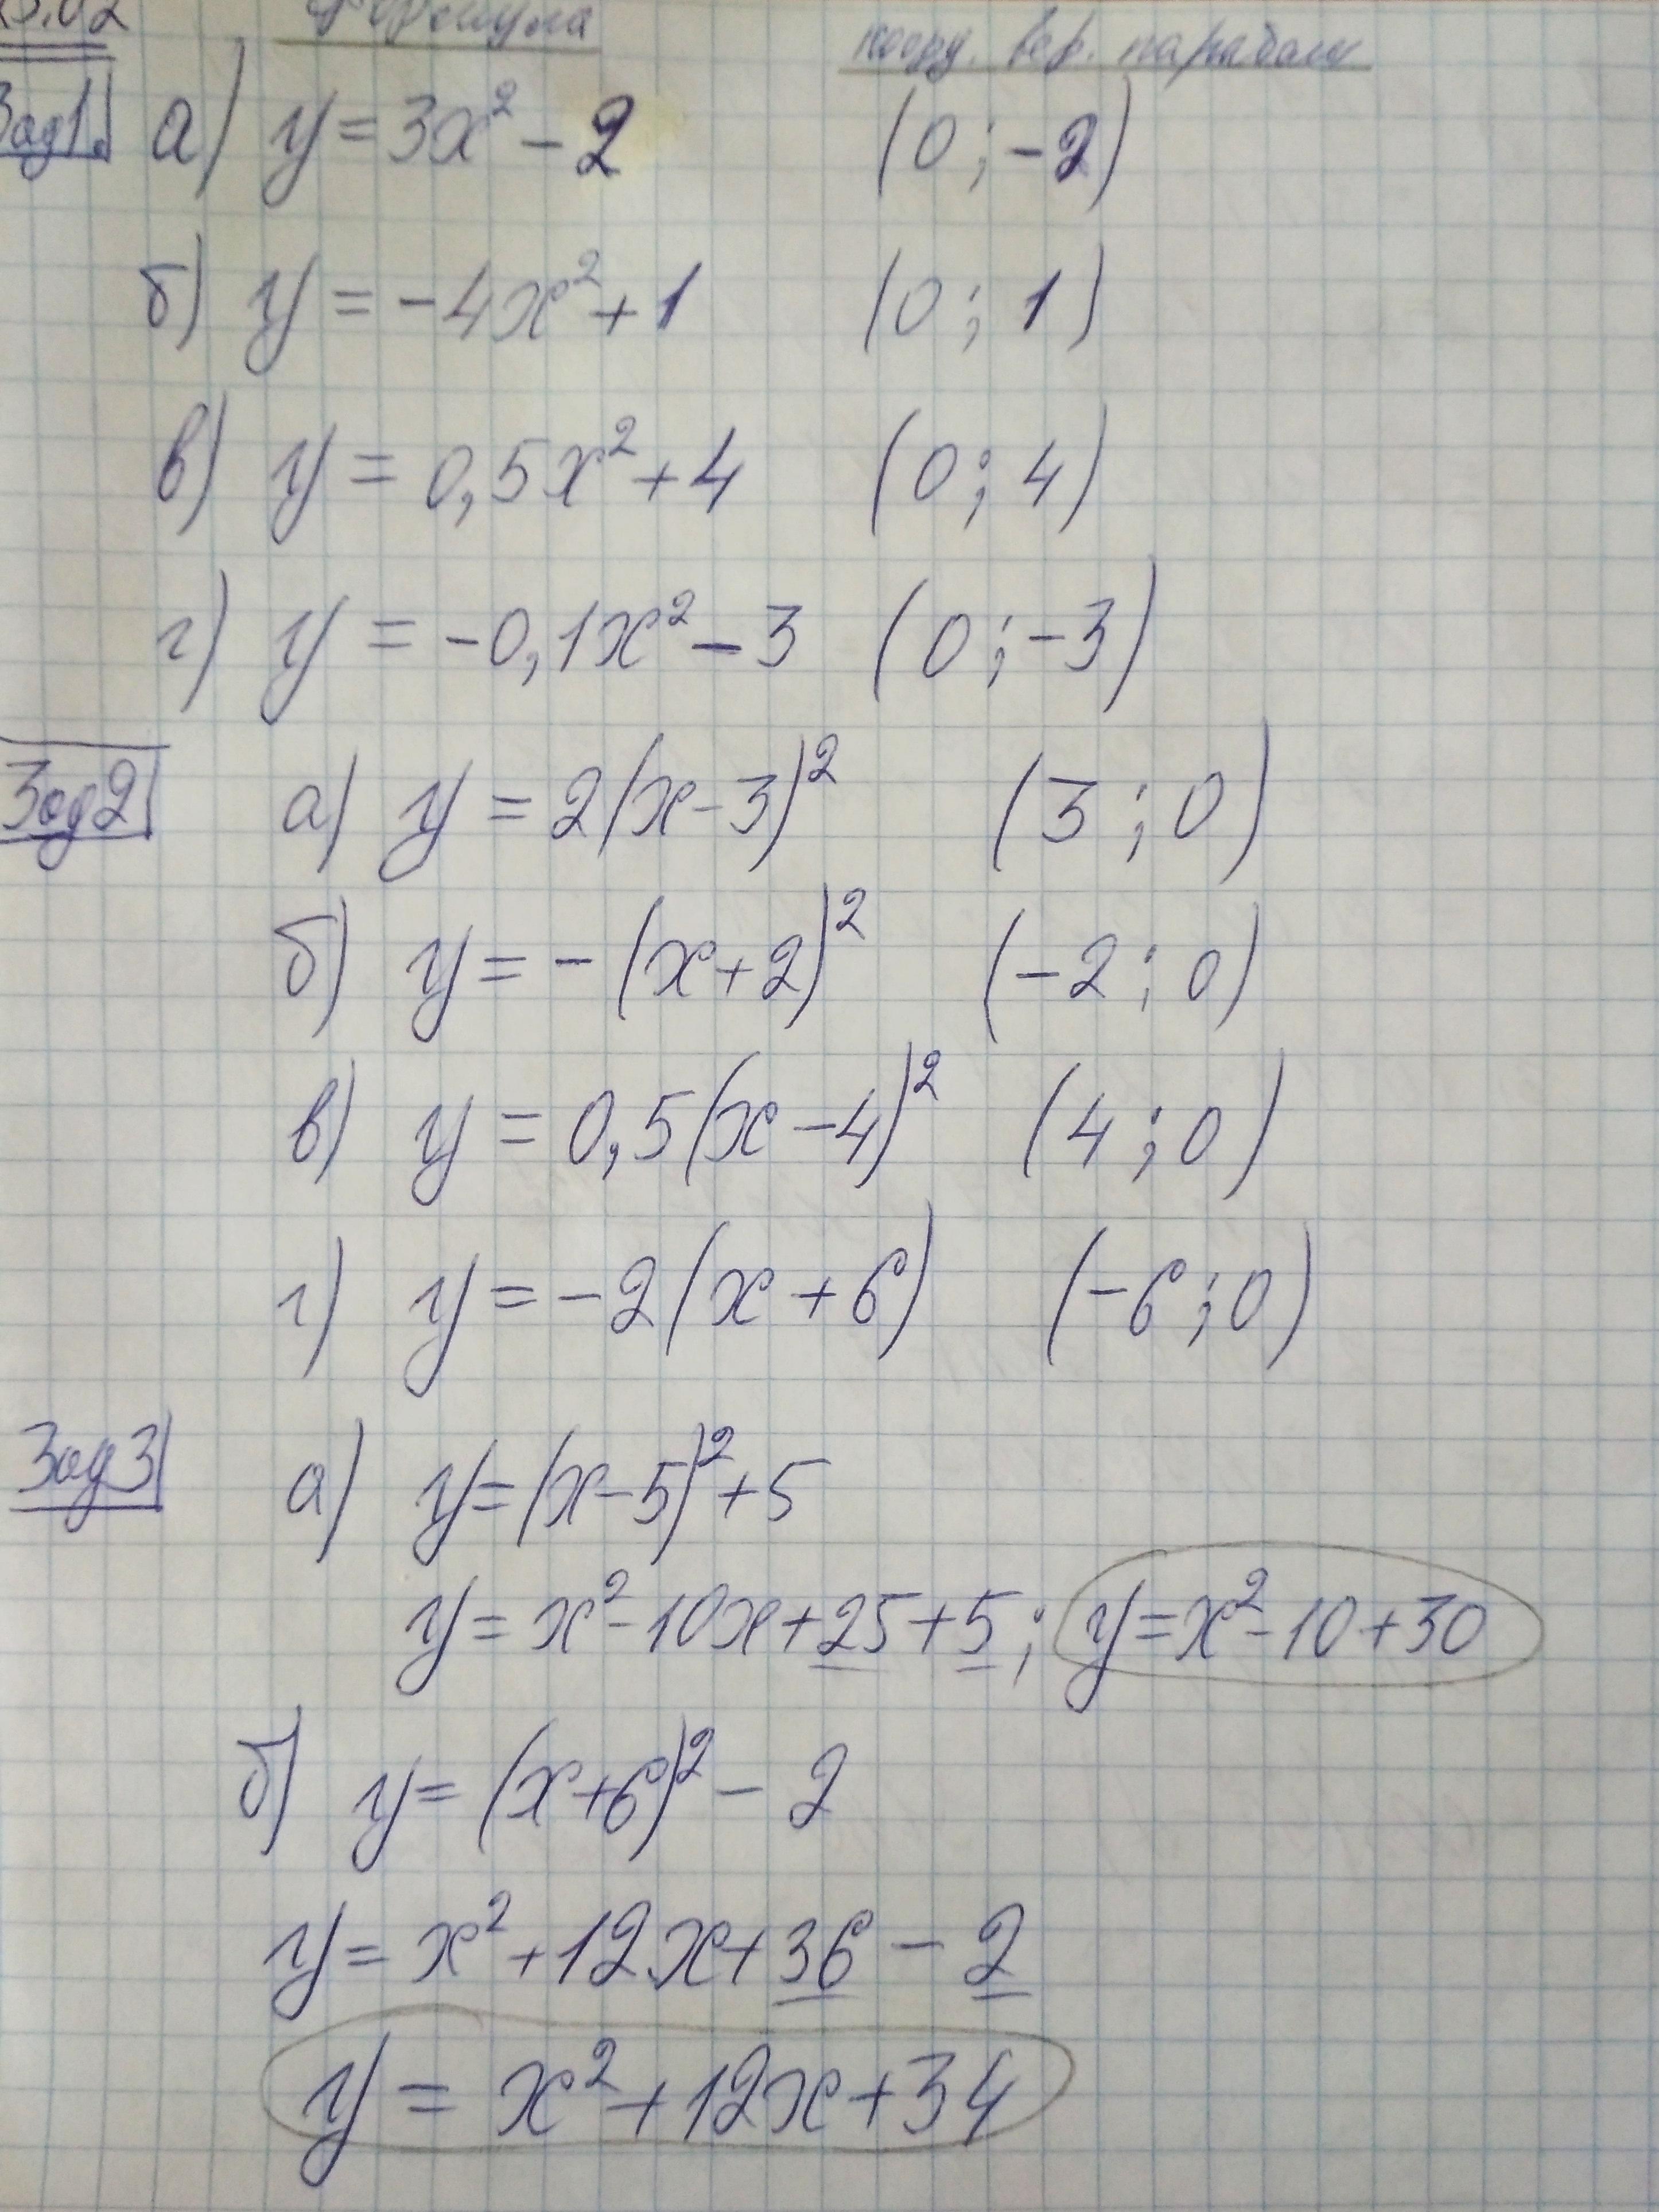 формула коорд. вер. параболы
Зад1. а) y = 3x² - 2 (0 ; -2)
б) y = -4x² + 1 (0 ; 1)
в) y = 0,5x² + 4 (0 ; 4)
г) y = -0,1x² - 3 (0 ; -3)
Зад2 а) y = 2(x-3)² (3 ; 0)
б) y = -(x+2)² (-2 ; 0)
в) y = 0,5(x-4)² (4 ; 0)
г) y = -2(x+6) (-6 ; 0)
Зад3 а) y = (x-5)² + 5
y = x² - 10x + 25 + 5 ; y = x² - 10 + 30
б) y = (x+6)² - 2
y = x² + 12x + 36 - 2
y = x² + 12x + 34